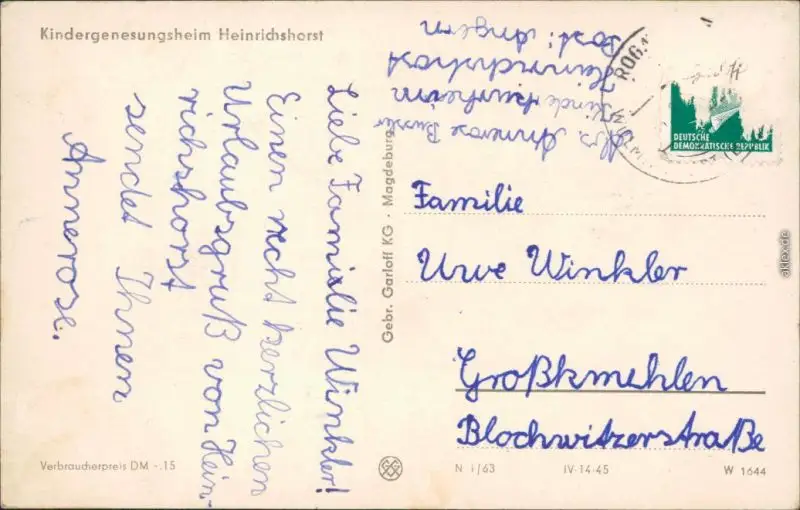 Kindergenesungsheim Heinrichshorst
Liebe Familie Winkler!
Einen recht herzlichen
Urlaubsgruß von Hein-
richshorst
sendet Ihnen
Annerose.
Verbraucherpreis DM -.15
Gebr. Garloff KG · Magdeburg
Abs. Annerose
Kinderkurheim
Heinrichshorst
Post: Angern
ROGÄ
DEUTSCHE
DEMOKRATISCHE REPUBLIK
Familie
Uwe Winkler
Großkmehlen
Blochwitzerstraße
N 1/63 IV-14-45 W 1644
akpool.de